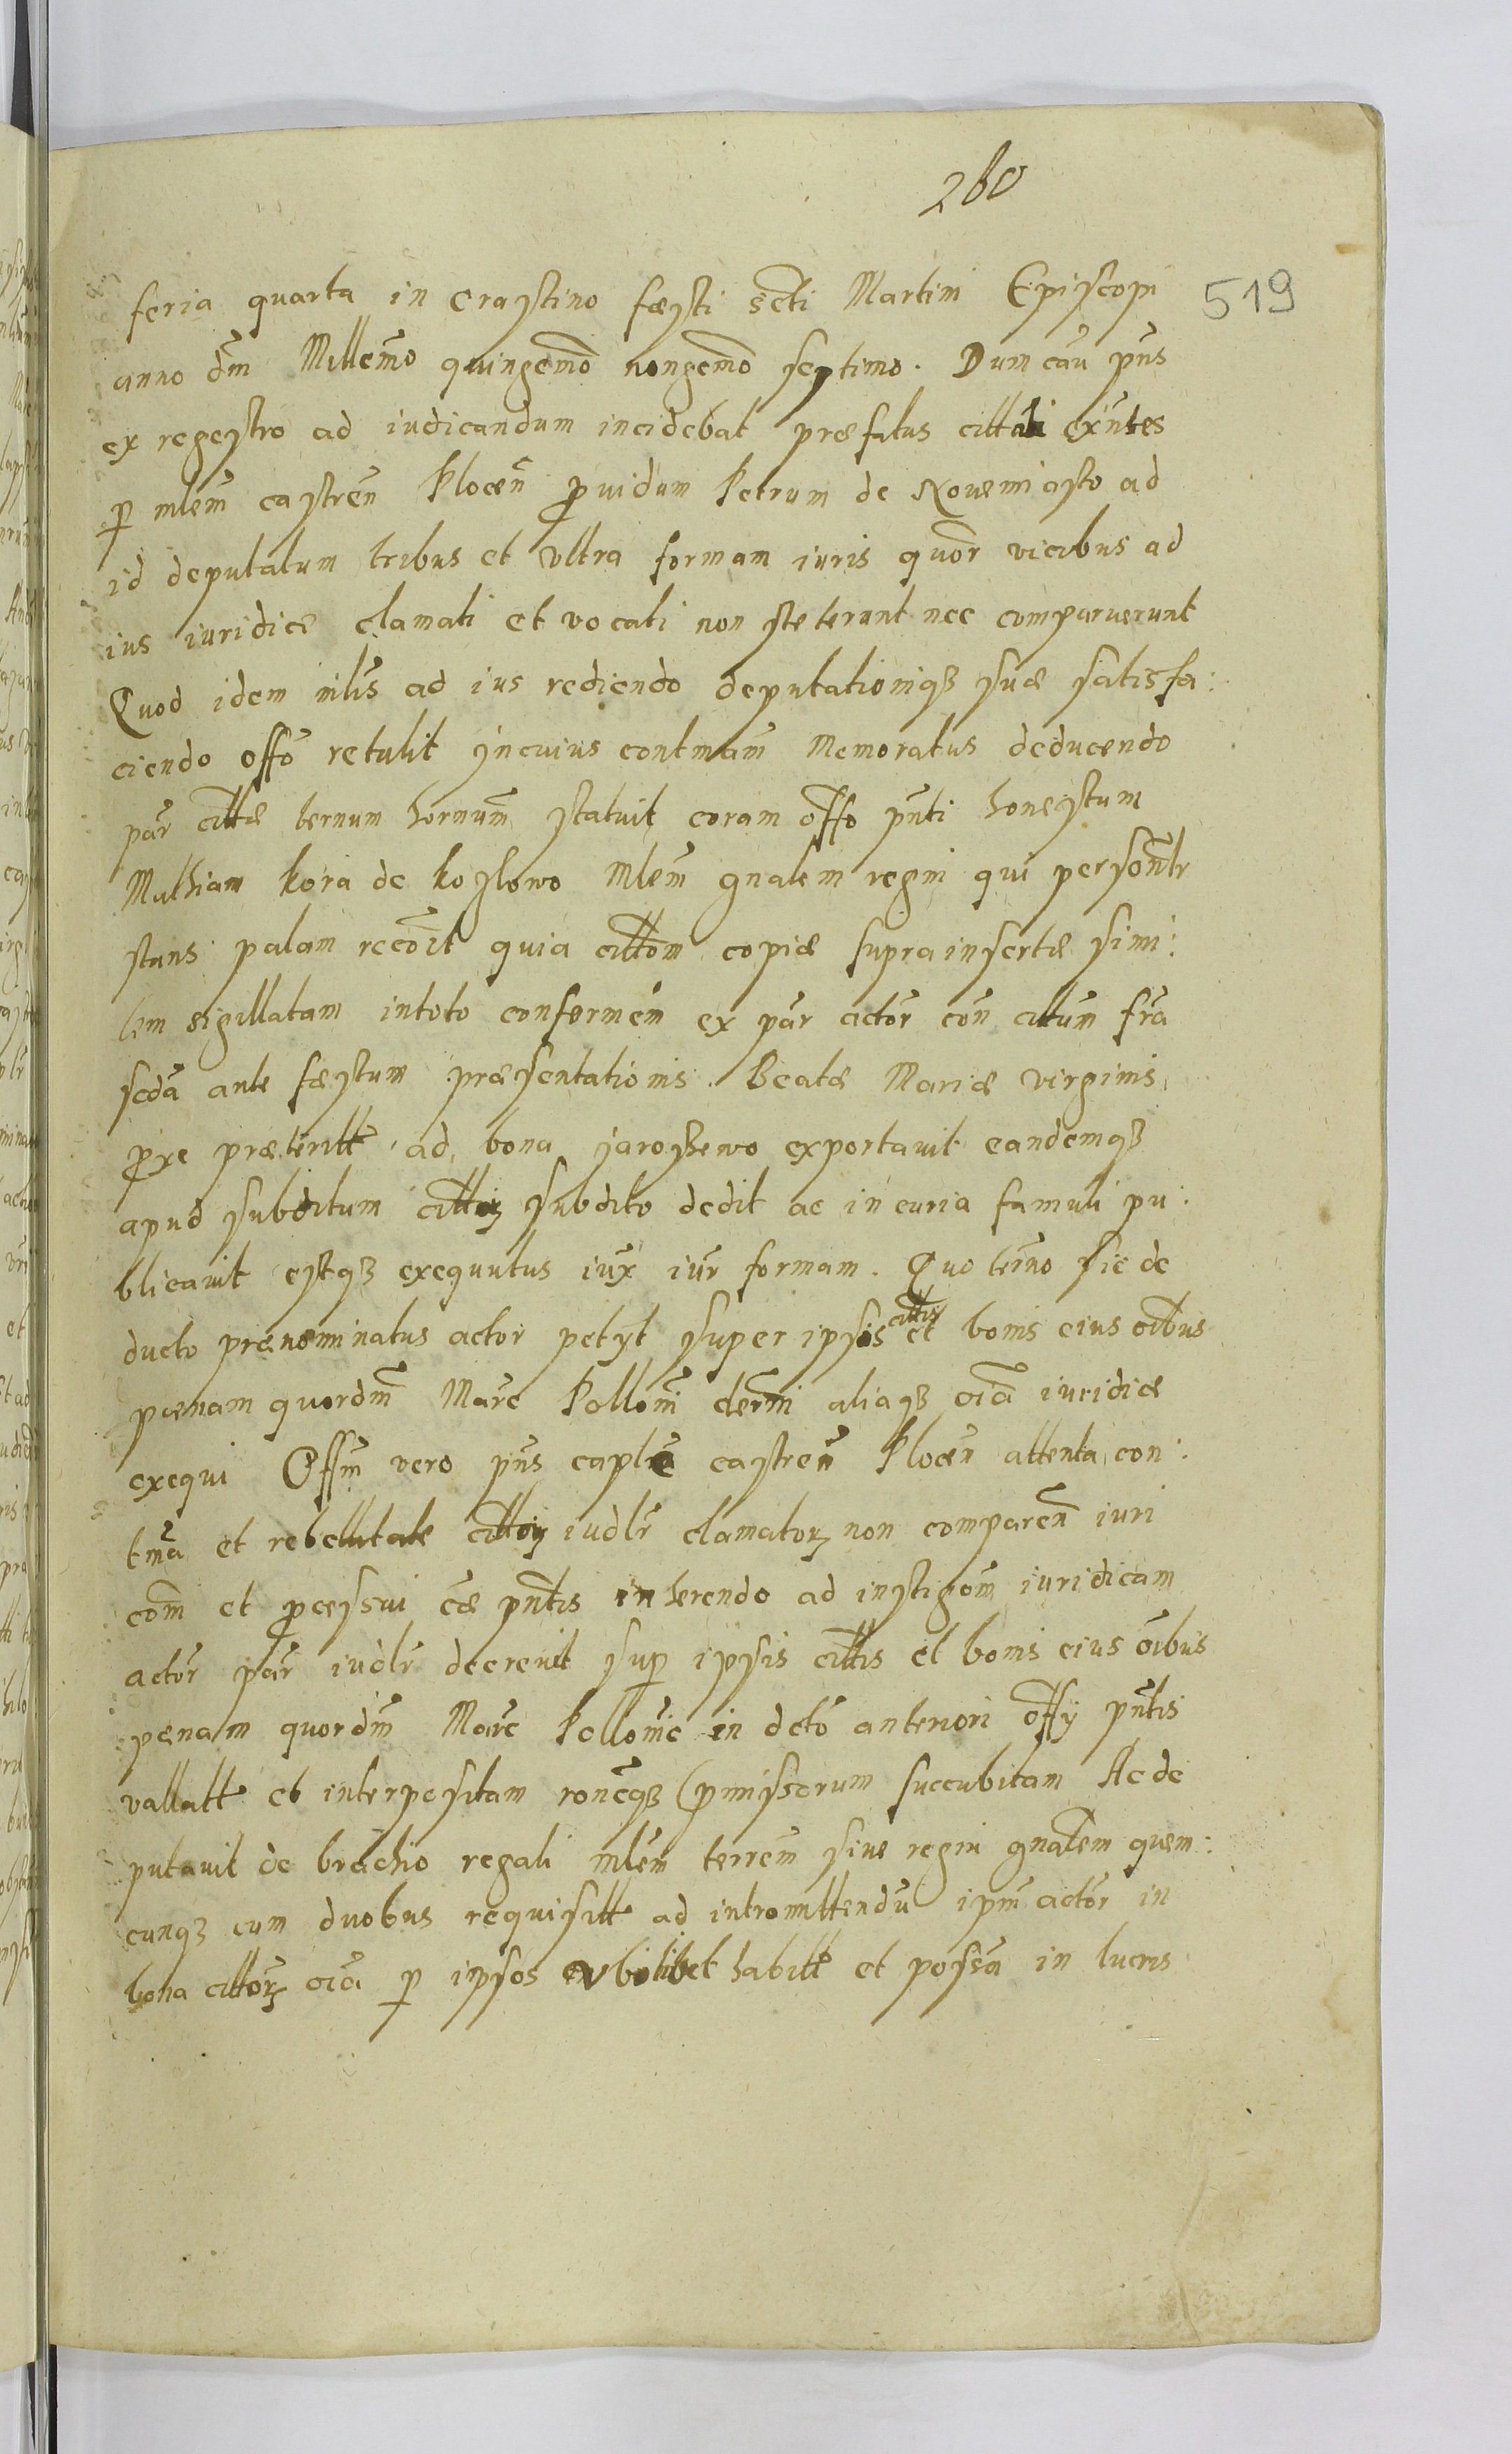 260
519
feria quarta in crastino fæsti scti Martini Episcopi
anno dm Millemo quingemo nongemo septimo. Dum cau pns
ex regestro ad iudicandum incidebat præfatus cittati exntes
p mlem castren Plocen prouidum Petrum de Nouemiasto ad
id deputatum tribus et vltra formam iuris quor vicibus ad
ius iuridice clamati et vocati non steterunt nec comparuerunt
Quod idem mlis ad ius rediendo deputationiqз suæ satisfa:
ciendo offo retulit In cuius contmam Memoratus deducendo
par cittæ ternum hornum statuit coram offo pnti honestum
Mathiam kora de kozlowo Mlem gnalem regni qui personlr
stans palam recoit quia cittom copiæ suprainsertæ simi:
lem sigillatam intoto conformem ex par actor con citum fra
scda ante fæstum præsentationis Beatæ Mariæ virginis
proxe præteritt ad bona jaroszewo exportauit eandemqз
apud subditum cittoꝝ subdito dedit ac in curia famuli pu:
blicauit estqз exequutus iux iur formam. Quo termo sic de
ducto prænominatus actor petyt super ipsis cittis et bonis eius oibus
pænam quordm Marc Pollom derni aliaqз oia iuridice
exequi Offm vero pns capli castren Plocen attenta con:
tma et rebellitate cittoꝝ iudlr clamatoꝝ non comparen iuri
com et processui cæ pntis inherendo ad instigom iuridicam
actor par iudlr decreuit sup ipsis cittis et bonis eius oibus
pænam quordm Marc Pollonic in dcto anteriori offy pntis
vallatt et interpositam roneqз pmissorum succubitam Ac de
putauit de brachio regali mlem terrem siue regni gnalem quem:
cunqз cum duobus requisitt ad intromittendu ipm actor in
bona cittoꝝ oia p ipsos vbilibet habitt et possa in lucris